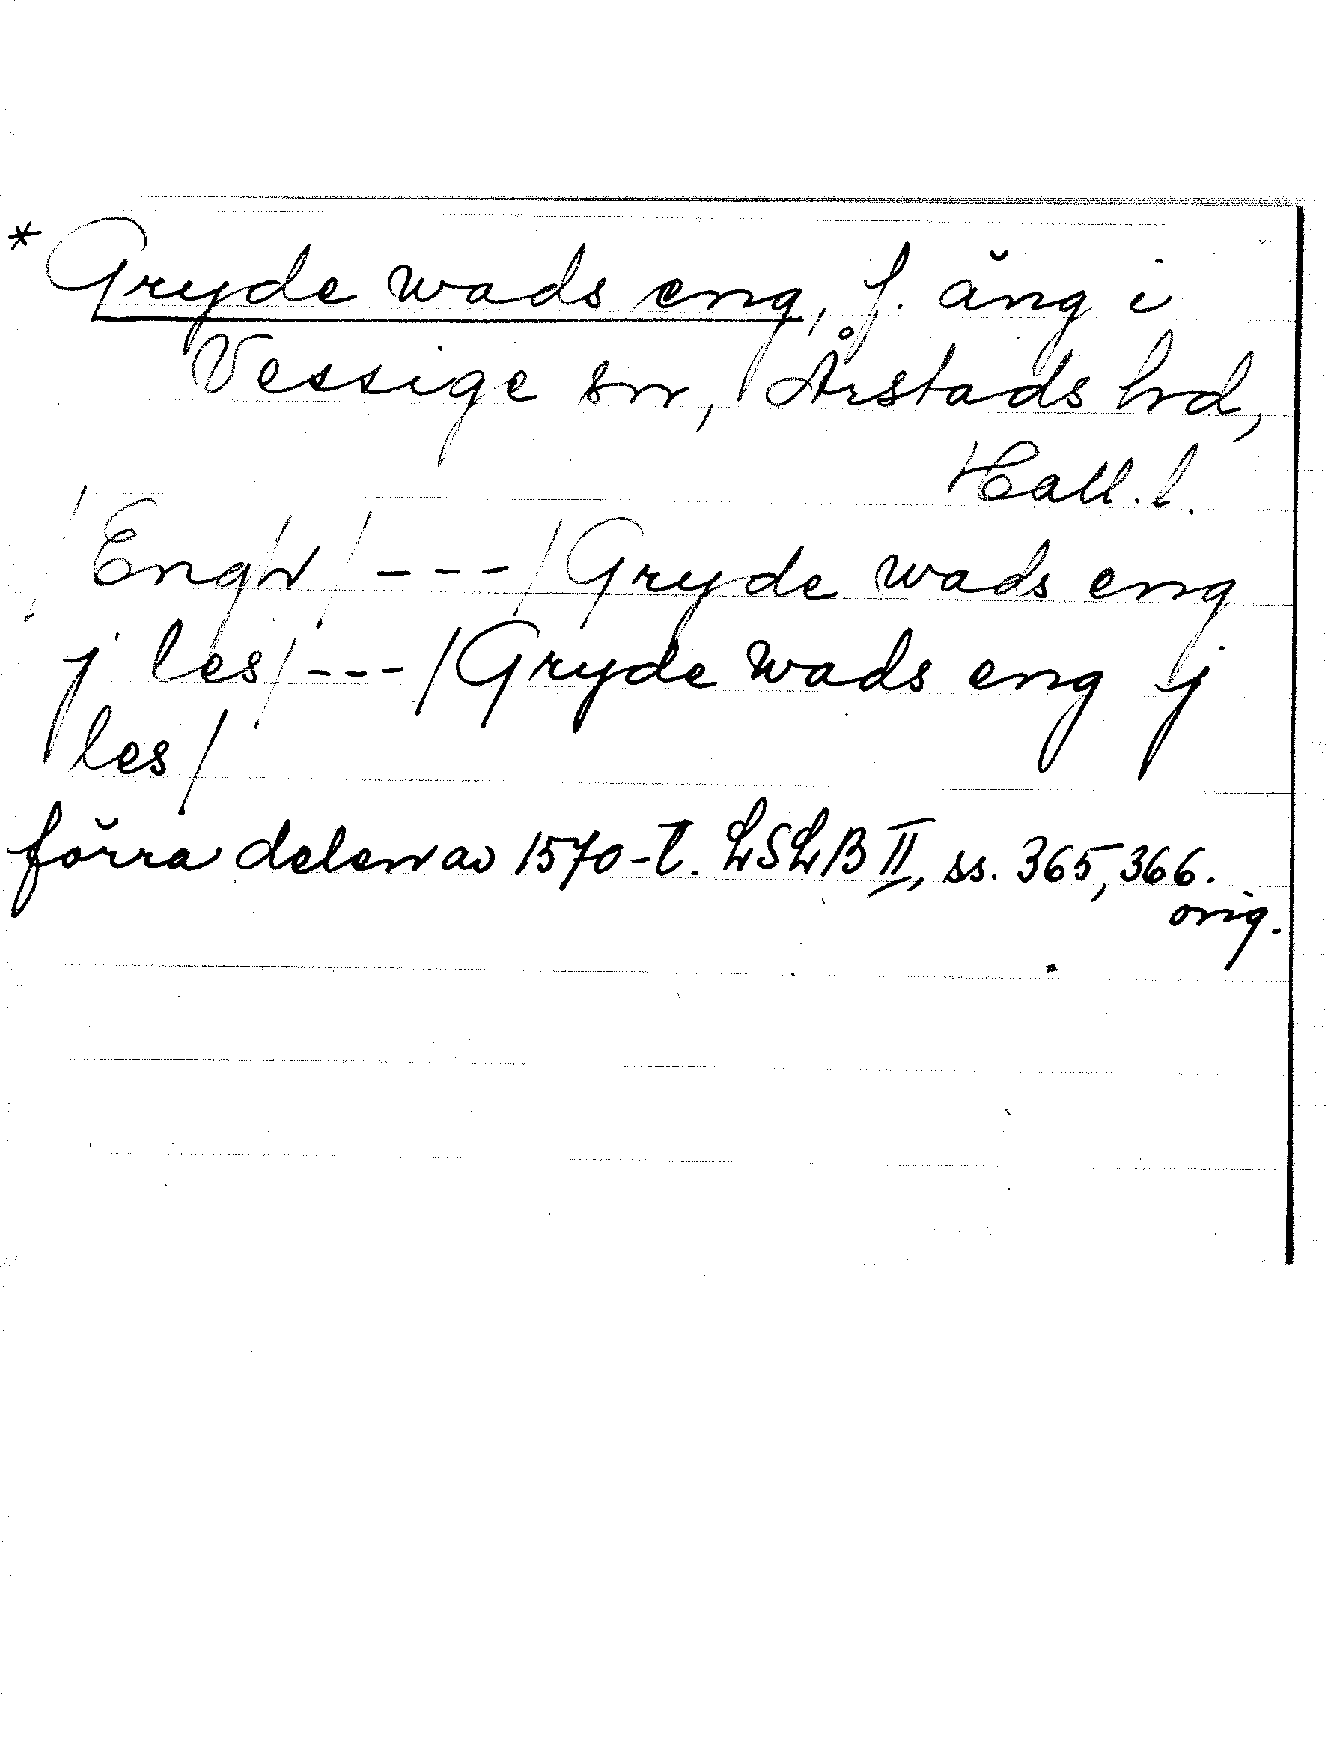 * Gryde wads eng, f. äng i
Vessige sn, Årstads hd,
Hall. l.
Engh / --- / Gryde wads eng
j les / --- / Gryde wads eng j
les /
förra delen av 1570-t. LSLB II, ss. 365, 366.
orig.